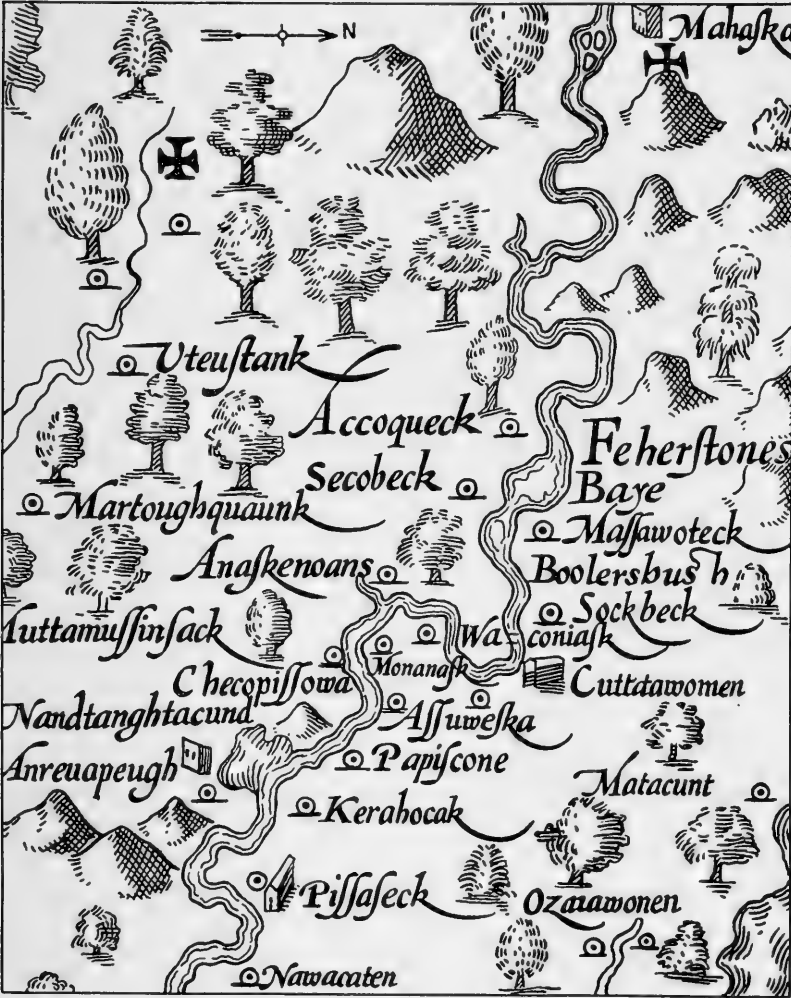 N
Mahaſka
Uteuſtank
Accoqueck
Feherſtones
Secobeck
Baye
Martoughquaunk
Maſſawoteck
Anaſkenoans
Boolersbush
Sockbeck
Muttamuſſinſack
Waconiaſk
Monanaſk
Checopiſſowa
Cuttatawomen
Nandtanghtacund
Aſſuweſka
Anreuapeugh
Papiſcone
Matacunt
Kerahocak
Piſſaſeck
Ozaiawonen
Nawacaten